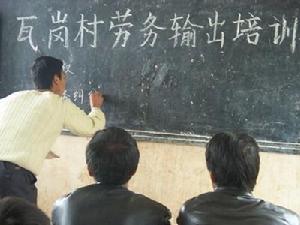 瓦岗村劳务输出培训